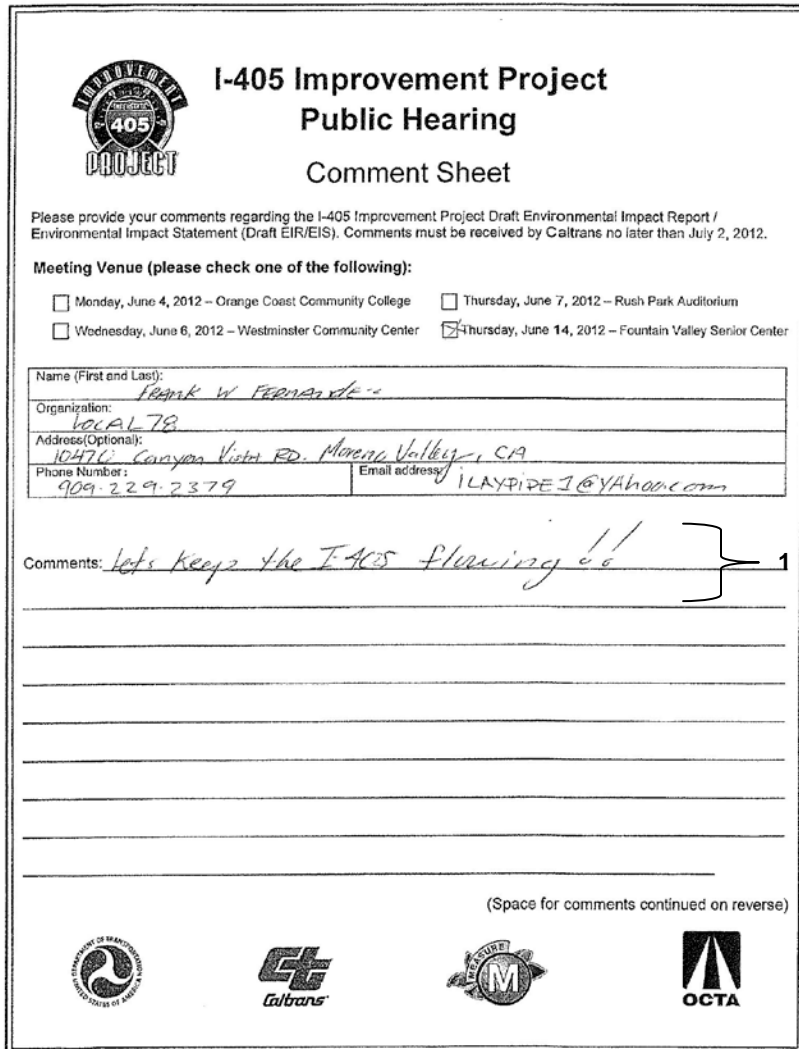 IMPROVEMENT
INTERSTATE
405
PROJECT
I-405 Improvement Project
Public Hearing
Comment Sheet
Please provide your comments regarding the I-405 Improvement Project Draft Environmental Impact Report /
Environmental Impact Statement (Draft EIR/EIS). Comments must be received by Caltrans no later than July 2, 2012.
Meeting Venue (please check one of the following):
Monday, June 4, 2012 – Orange Coast Community College
Thursday, June 7, 2012 – Rush Park Auditorium
Wednesday, June 6, 2012 – Westminster Community Center
Thursday, June 14, 2012 – Fountain Valley Senior Center
Name (First and Last):
FRANK W FERNANDEZ
Organization:
LOCAL 78
Address(Optional):
10470 Canyon Vista RD. Moreno Valley, CA
Phone Number:
909-229-2379
Email address:
ILAYPIPE1@YAhoo.com
Comments: Lets Keep the I-405 flowing!!
1
(Space for comments continued on reverse)
DEPARTMENT OF TRANSPORTATION
UNITED STATES OF AMERICA
Caltrans
MEASURE
M
OCTA